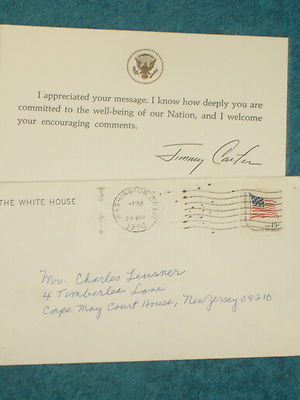 I appreciated your message. I know how deeply you are
committed to the well-being of our Nation, and I welcome
your encouraging comments.
Jimmy Carter
THE WHITE HOUSE
WASHINGTON, D.C.
PM
24 APR
1980
USA 15c
Mr. Charles Leusner
4 Timberlea Lane
Cape May Court House, New Jersey 08210